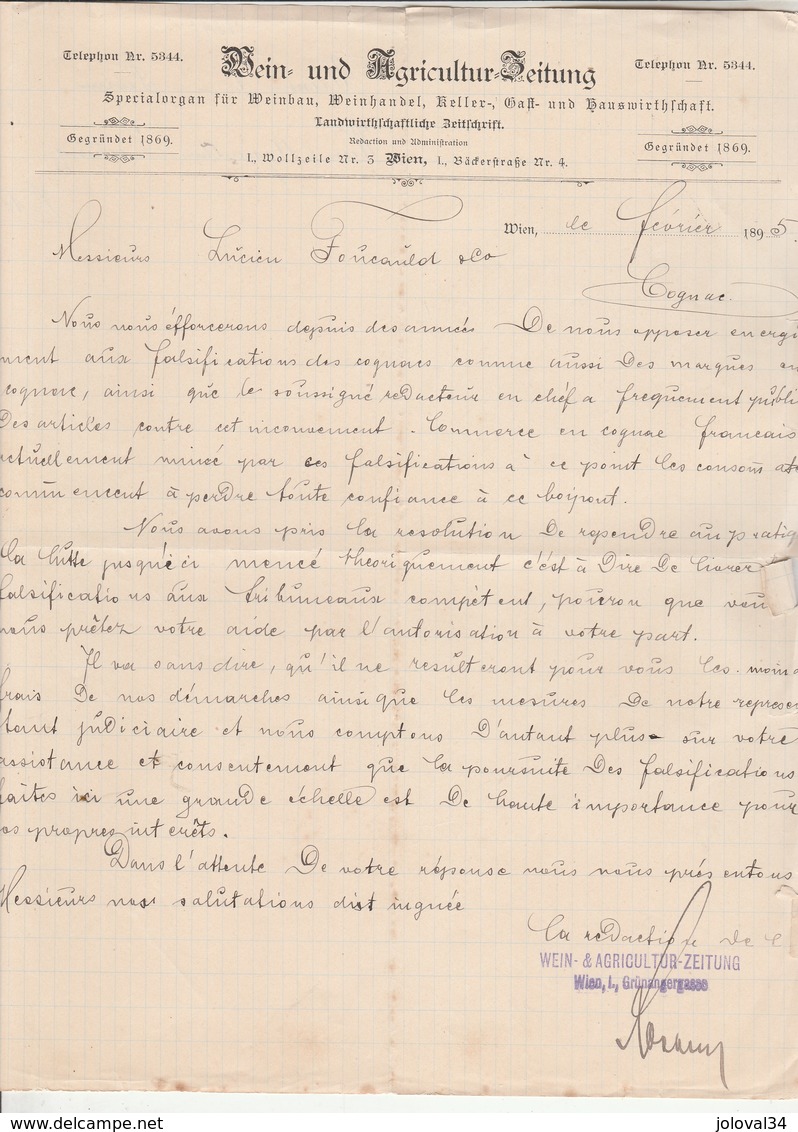 Telephon Nr. 5344.
Wein- und Agricultur-Zeitung
Telephon Nr. 5344.
Specialorgan für Weinbau, Weinhandel, Keller-, Gast- und Hauswirthschaft.
Landwirthschaftliche Zeitschrift.
Gegründet 1869.
Redaction und Administration
Gegründet 1869.
I., Wollzeile Nr. 3 Wien, I., Bäckerstraße Nr. 4.
Wien, le février 1895.
Messieurs Lucien Foucauld & Co
Cognac.
Nous nous éfforcerons depuis des années De nous opposer energi
ment aux falsifications des cognacs comme aussi Des marques en
cognac, ainsi que le soussigné redacteur en chéf a frequement publi
Des articles contre cet inconvement. Commerce en cognac francais
actuellement miné par ces falsifications à ce point les consom
commencent à perdre toute confiance à ce
Nous avons pris la resolution De rependre au pratiq
la lutte jusqu'ici mencé theoriquement c'ést à Dire De livrer
falsifications aux tribuneaux compétent, pourvu que vou
nous prêtez votre aide par l'autorisation à votre part.
Il va sans dire, qu'il ne resulteront pour vous les moind
frais De nos démarches ainsi que les mesures De notre represen
tant judiciaire et nous comptons D'autant plus sur votre
assistance et consentement que la poursuite Des falsifications
faites ici une grande échelle est De haute importance pour
os propres interêts.
Dans l'attente De votre réponse nous nous présentons
Messieurs nos salutations distinguée
la redaction de
WEIN- & AGRICULTUR-ZEITUNG
Wien, I., Grünangergasse
joloval34